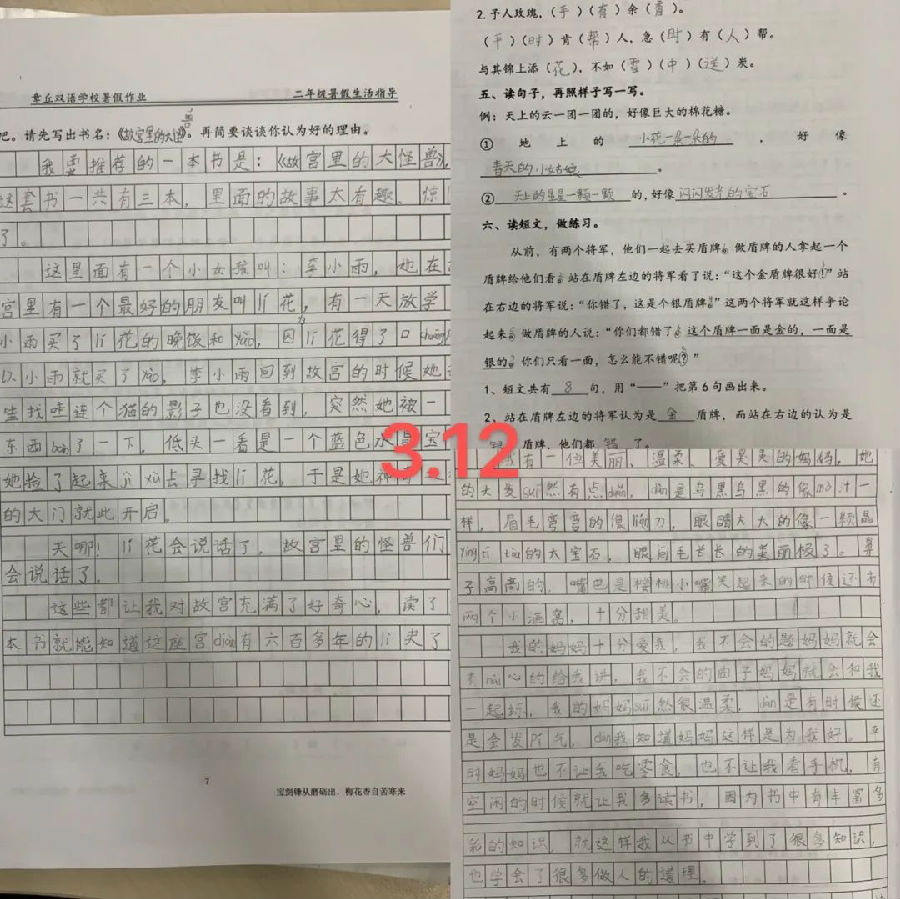 章丘双语学校暑假作业 二年级暑假生活指导
吧。请先写出书名:《故宫里的大怪兽》。再简要谈谈你认为好的理由。
我要推荐的一本书是:《故宫里的大怪兽》,
这套书一共有三本,里面的故事太有趣、惊
了。
这里面有一个小女孩叫:李小雨,她在
宫里有一个最好的朋友叫li花,有一天放学
小雨买了li花的晚饭和yào,因为li花得了口
以小雨就买了yào,李小雨回到故宫的时候她
连个猫的影子也没看到,突然她被一
东西 了一下,低头一看是一个蓝色水 宝
她捡了起来ji xù去寻找li花,于是她神
的大门就此开启。
天啊!li花会说话了,故宫里的怪兽们
会说话了。
这些都让我对故宫充满了好奇心,读了
本书就能知道这座宫diàn有六百多年的li史了
7
宝剑锋从磨砺出,梅花香自苦寒来
2.予人玫瑰,(手)(有)余(香)。
(平)(时)肯(帮)人,急(时)有(人)帮。
与其锦上添(花),不如(雪)(中)(送)炭。
五、读句子,再照样子写一写。
例:天上的云一团一团的,好像巨大的棉花糖。
① 地上的 小花一朵一朵的 , 好像
春天的小姑娘 。
② 天上的星星一颗一颗 的,好像 闪闪发光的宝石 。
六、读短文,做练习。
从前,有两个将军,他们一起去买盾牌。做盾牌的人拿起一个
盾牌给他们看。站在盾牌左边的将军看了说:“这个金盾牌很好!”站
在右边的将军说:“你错了,这是个银盾牌。”这两个将军就这样争论
起来。做盾牌的人说:“你们都错了。这个盾牌一面是金的,一面是
银的。你们只看一面,怎么能不错呢?”
1、短文共有 8 句,用“——”把第6句画出来。
2、站在盾牌左边的将军认为是 金 盾牌,而站在右边的认为是
银 盾牌,他们都 错 了。
3.12
我有一位美丽、温柔、 的妈妈,她
的大 suī然有点 , 是乌黑乌黑的 一
样,眉毛弯弯的像 ,眼睛大大的像一颗晶
yíng tī tòu的大宝石,眼 毛长长的美丽极了。鼻
子高高的,嘴巴是樱桃小嘴笑起来的时候还有
两个小酒窝,十分甜美。
我的妈妈十分爱我!我不会的题妈妈就会
nài心的给我讲,我不会的曲子妈妈就会和我
一起练,我的妈妈suī然很温柔,dàn是有时候还
是会发pí气,dàn我知道妈妈这样是为我好。
的妈妈也不让我吃零食,也不让我看手机,有
空闲的时候就让我多读书,因为书中有丰富多
彩的知识,就这样我从书中学到了很多知识,
也学会了很多做人的道理。